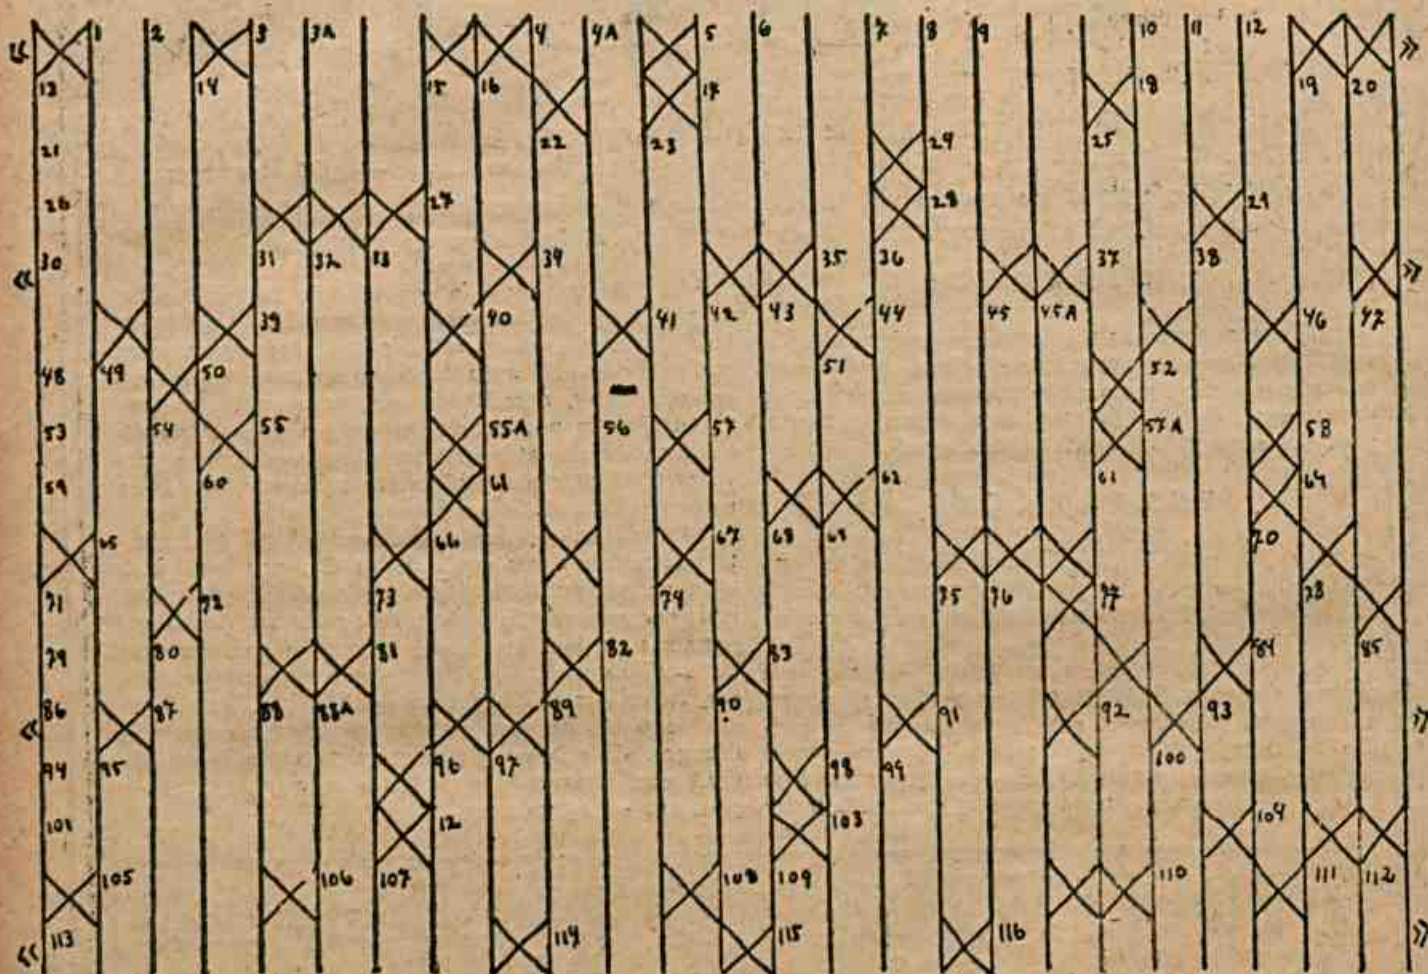 « 1 2 3 3A 4 4A 5 6 7 8 9 10 11 12 »
13 14 15 16 17 18 19 20
21 22 23 24 25
26 27 28 29
« 30 31 32 33 34 35 36 37 38 »
39 40 41 42 43 44 45 45A 46 47
48 49 50 51 52
53 54 55 55A 56 57 57A 58
59 60 61 62 61 64
65 66 67 68 69 70
71 72 73 74 75 76 77 78
79 80 81 82 83 84 85
« 86 87 88 88A 89 90 91 92 93 »
94 95 96 97 98 99 100
101 12 103 104
105 106 107 108 109 110 111 112
« 113 114 115 116 »